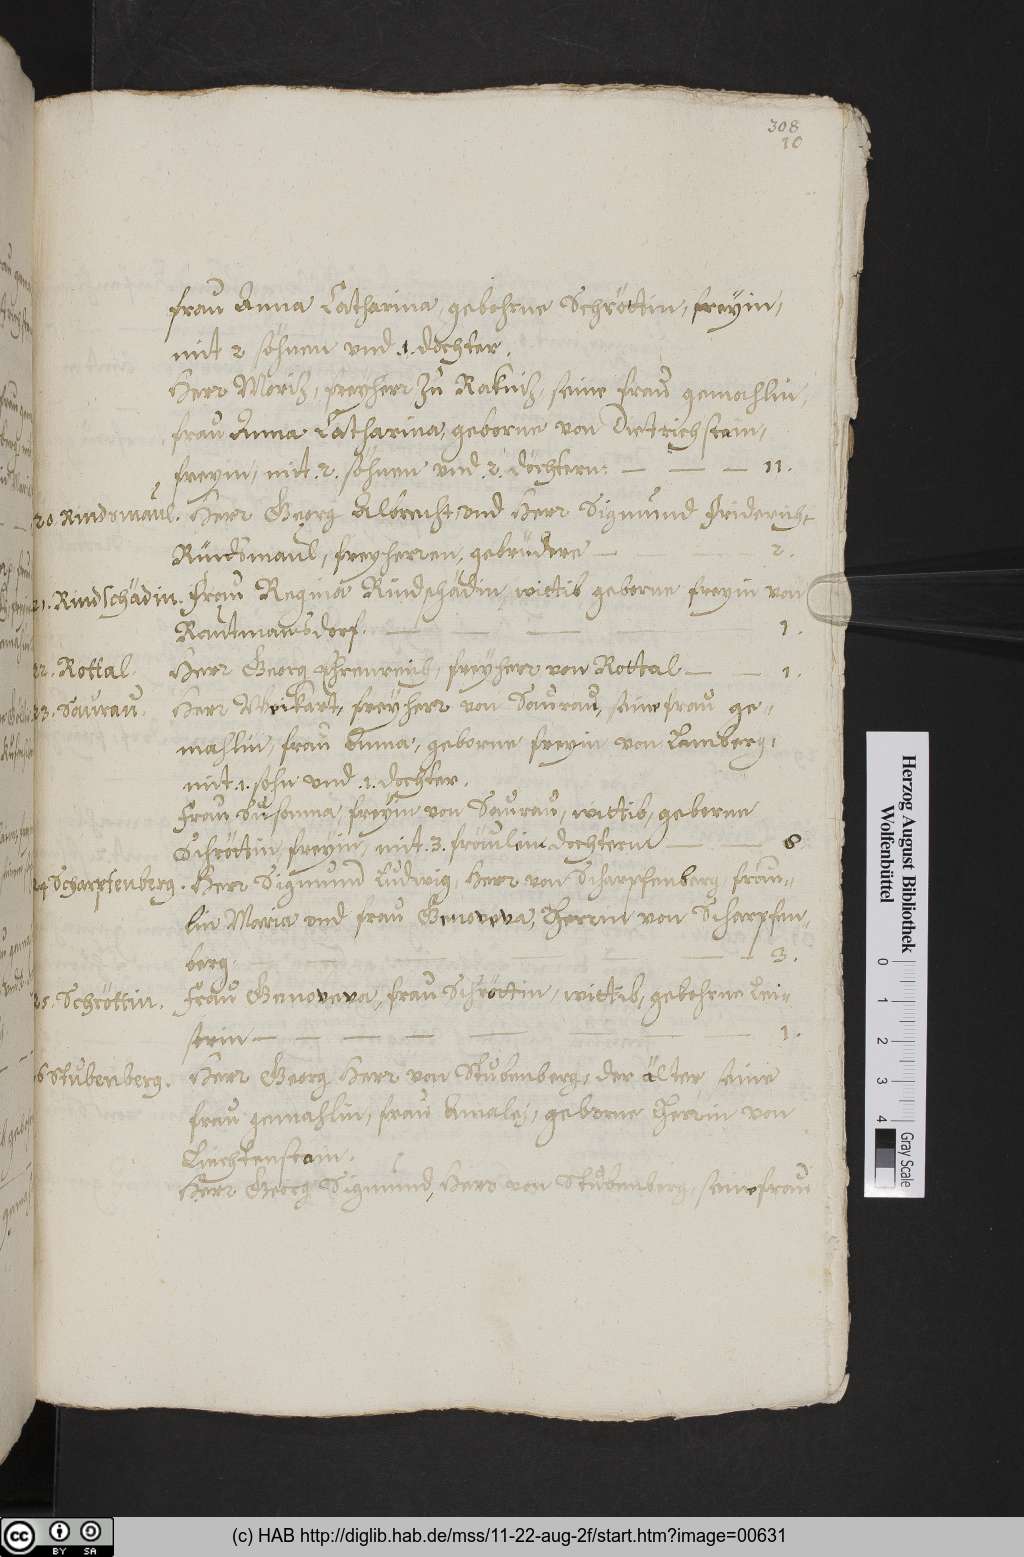 308
10
frau Anna Catharina, gebohrne Schröttin, freyin,
mit 2 söhnen vnd .1. dochter.
Herr Moritz, freyherr zu Rakniz, seine frau gemahlin,
frau Anna Catharina, geborne von Dietrichstein,
freyin, mit .2. söhnen vnd .2. döchtern: — — — 11.
20. Rindsmaul. Herr Georg Albrecht, vnd Herr Sigmund Friderich,
Rindsmaul, freyherren, gebrüdere — — 2.
21. Rindschädin. Frau Regina Rindschädin, wittib, geborne freyin von
Rautmansdorf. — — — 1.
22. Rottal. Herr Georg Ehrenreich, freyherr von Rottal — — 1.
23. Saurau. Herr Weikart, freyherr von Saurau, seine frau ge-
mahlin, frau Anna, geborne freyin von Lamberg,
mit .1. sohn vnd .1. dochter.
Frau Susanna freyin von Saurau, wittib, geborne
Schröttin, freyin, mit .3. fräulein dochtern — — 8
24 Scharpfenberg. Herr Sigmund Ludwig, Herr von Scharpfenberg, fräu-
lin Maria vnd frau Genoveva, Herrin von Scharpfen-
berg. — — — — — 3.
25. Schröttin. Frau Genoveva, frau Schröttin, wittib, gebohrne Lei-
serin — — — — — — — 1.
6 Stubenberg. Herr Georg Herr von Stubenberg, der älter seine
frau gemahlin, frau Amalej, geborne Herrin von
Liechtenstain.
Herr Georg Sigmund, Herr von Stubenberg, seine frau
Herzog August Bibliothek
Wolfenbüttel
0 1 2 3 4
Gray Scale
cc BY SA
(c) HAB http://diglib.hab.de/mss/11-22-aug-2f/start.htm?image=00631